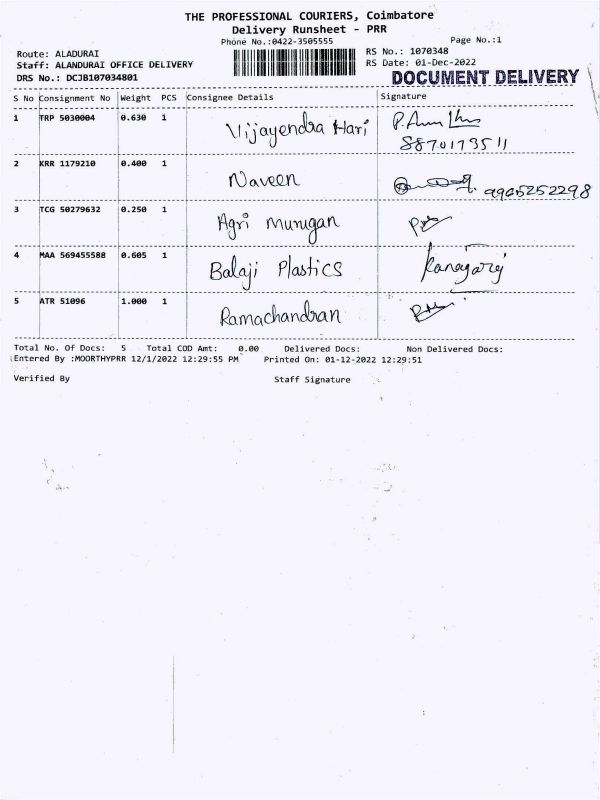 THE PROFESSIONAL COURIERS, Coimbatore
Delivery Runsheet - PRR
Phone No.:0422-3505555 Page No.:1
Route: ALADURAI RS No.: 1070348
Staff: ALANDURAI OFFICE DELIVERY RS Date: 01-Dec-2022
DRS No.: DCJB107034801 DOCUMENT DELIVERY
S No Consignment No Weight PCS Consignee Details Signature
1 TRP 5030004 0.630 1 Vijayendra Hari
8870173511
2 KRR 1179210 0.400 1 Naveen 9965252298
3 TCG 50279632 0.250 1 Agri Murugan
4 MAA 569455588 0.605 1 Balaji Plastics Kanagaraj
5 ATR 51096 1.000 1 Ramachandran
Total No. Of Docs: 5 Total COD Amt: 0.00 Delivered Docs: Non Delivered Docs:
Entered By :MOORTHYPRR 12/1/2022 12:29:55 PM Printed On: 01-12-2022 12:29:51
Verified By Staff Signature